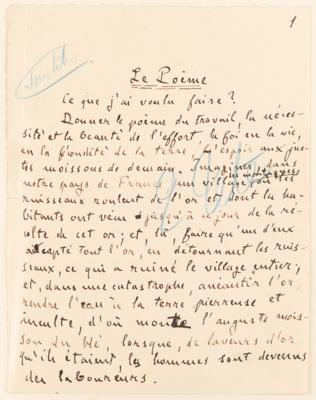 1
Le Poème
Ce que j'ai voulu faire?
Donner le poème du travail, la néces-
sité et la beauté de l'effort, la foi en la vie,
en la fécondité de la terre, l'espoir aux jus-
tes moissons de demain. Imaginez, dans
notre pays de France, un village où les
montagnes
ruisseaux roulent de l'or dont les ha-
bitants ont vécu jusqu'à ce jour de la ré-
colte de cet or; et, là, faire qu'un d'eux
a capté tout l'or, en détournant les ruis-
seaux, ce qui a ruiné le village entier;
et, dans une catastrophe, anéantir l'or,
rendre l'eau à la terre pierreuse et
inculte, d'où monte l'auguste mois-
son du blé, lorsque, de laveurs d'or
qu'ils étaient, les hommes sont devenus
des laboureurs.